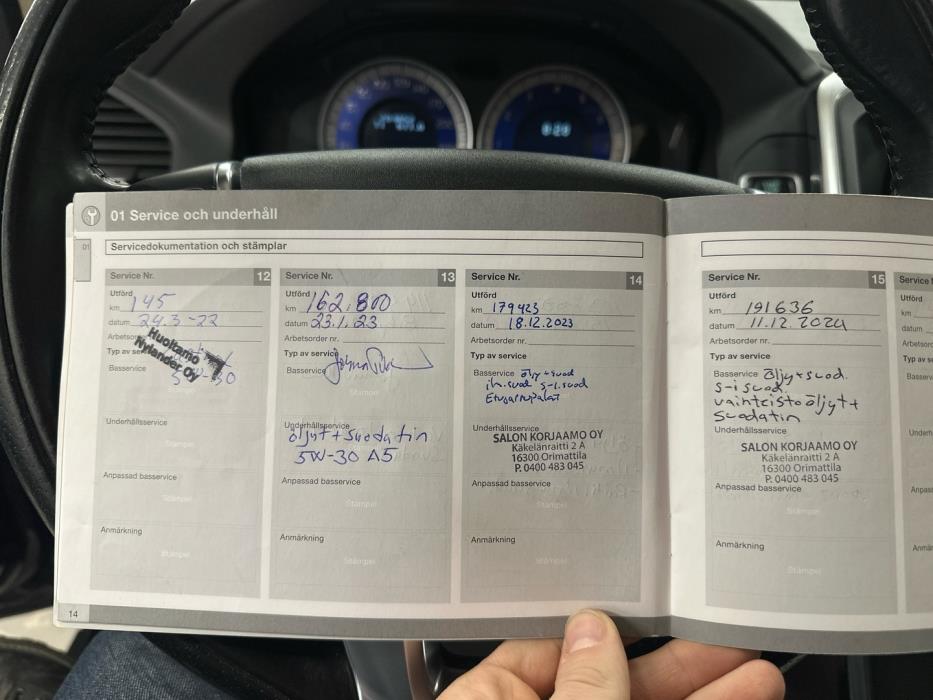 01 Service och underhåll
01
Servicedokumentation och stämplar
Service Nr. 12
Utförd
km 145
datum 24.3-22
Arbetsorder
Huoltamo
Nylander Oy
Typ av se
5W-30
Basservice
Underhållsservice
Stämpel
Anpassad basservice
Stämpel
Anmärkning
Stämpel
14
Service Nr. 13
Utförd
km 162.800
datum 23.1.23
Arbetsorder nr.
Typ av service
Basservice
Stämpel
Underhållsservice
öljyt + suodatin
5W-30 A5
Anpassad basservice
Stämpel
Anmärkning
Stämpel
Service Nr. 14
Utförd
km 179423
datum 18.12.2023
Arbetsorder nr.
Typ av service
Basservice öljy + suod
ih.suod s-i.suod
Etujarrupalat
Underhållsservice
SALON KORJAAMO OY
Käkelänraitti 2 A
16300 Orimattila
P. 0400 483 045
Anpassad basservice
Stämpel
Anmärkning
Stämpel
Service Nr. 15
Utförd
km 191636
datum 11.12.2024
Arbetsorder nr.
Typ av service
Basservice öljy + suod.
s-i suod.
vaihteistoöljyt +
suodatin
Underhållsservice
SALON KORJAAMO OY
Käkelänraitti 2 A
16300 Orimattila
P. 0400 483 045
Anpassad basservice
Stämpel
Anmärkning
Stämpel
Service
Utförd
km
datum
Arbetsorc
Typ av se
Basserv
Underh
Anpass
Anmär